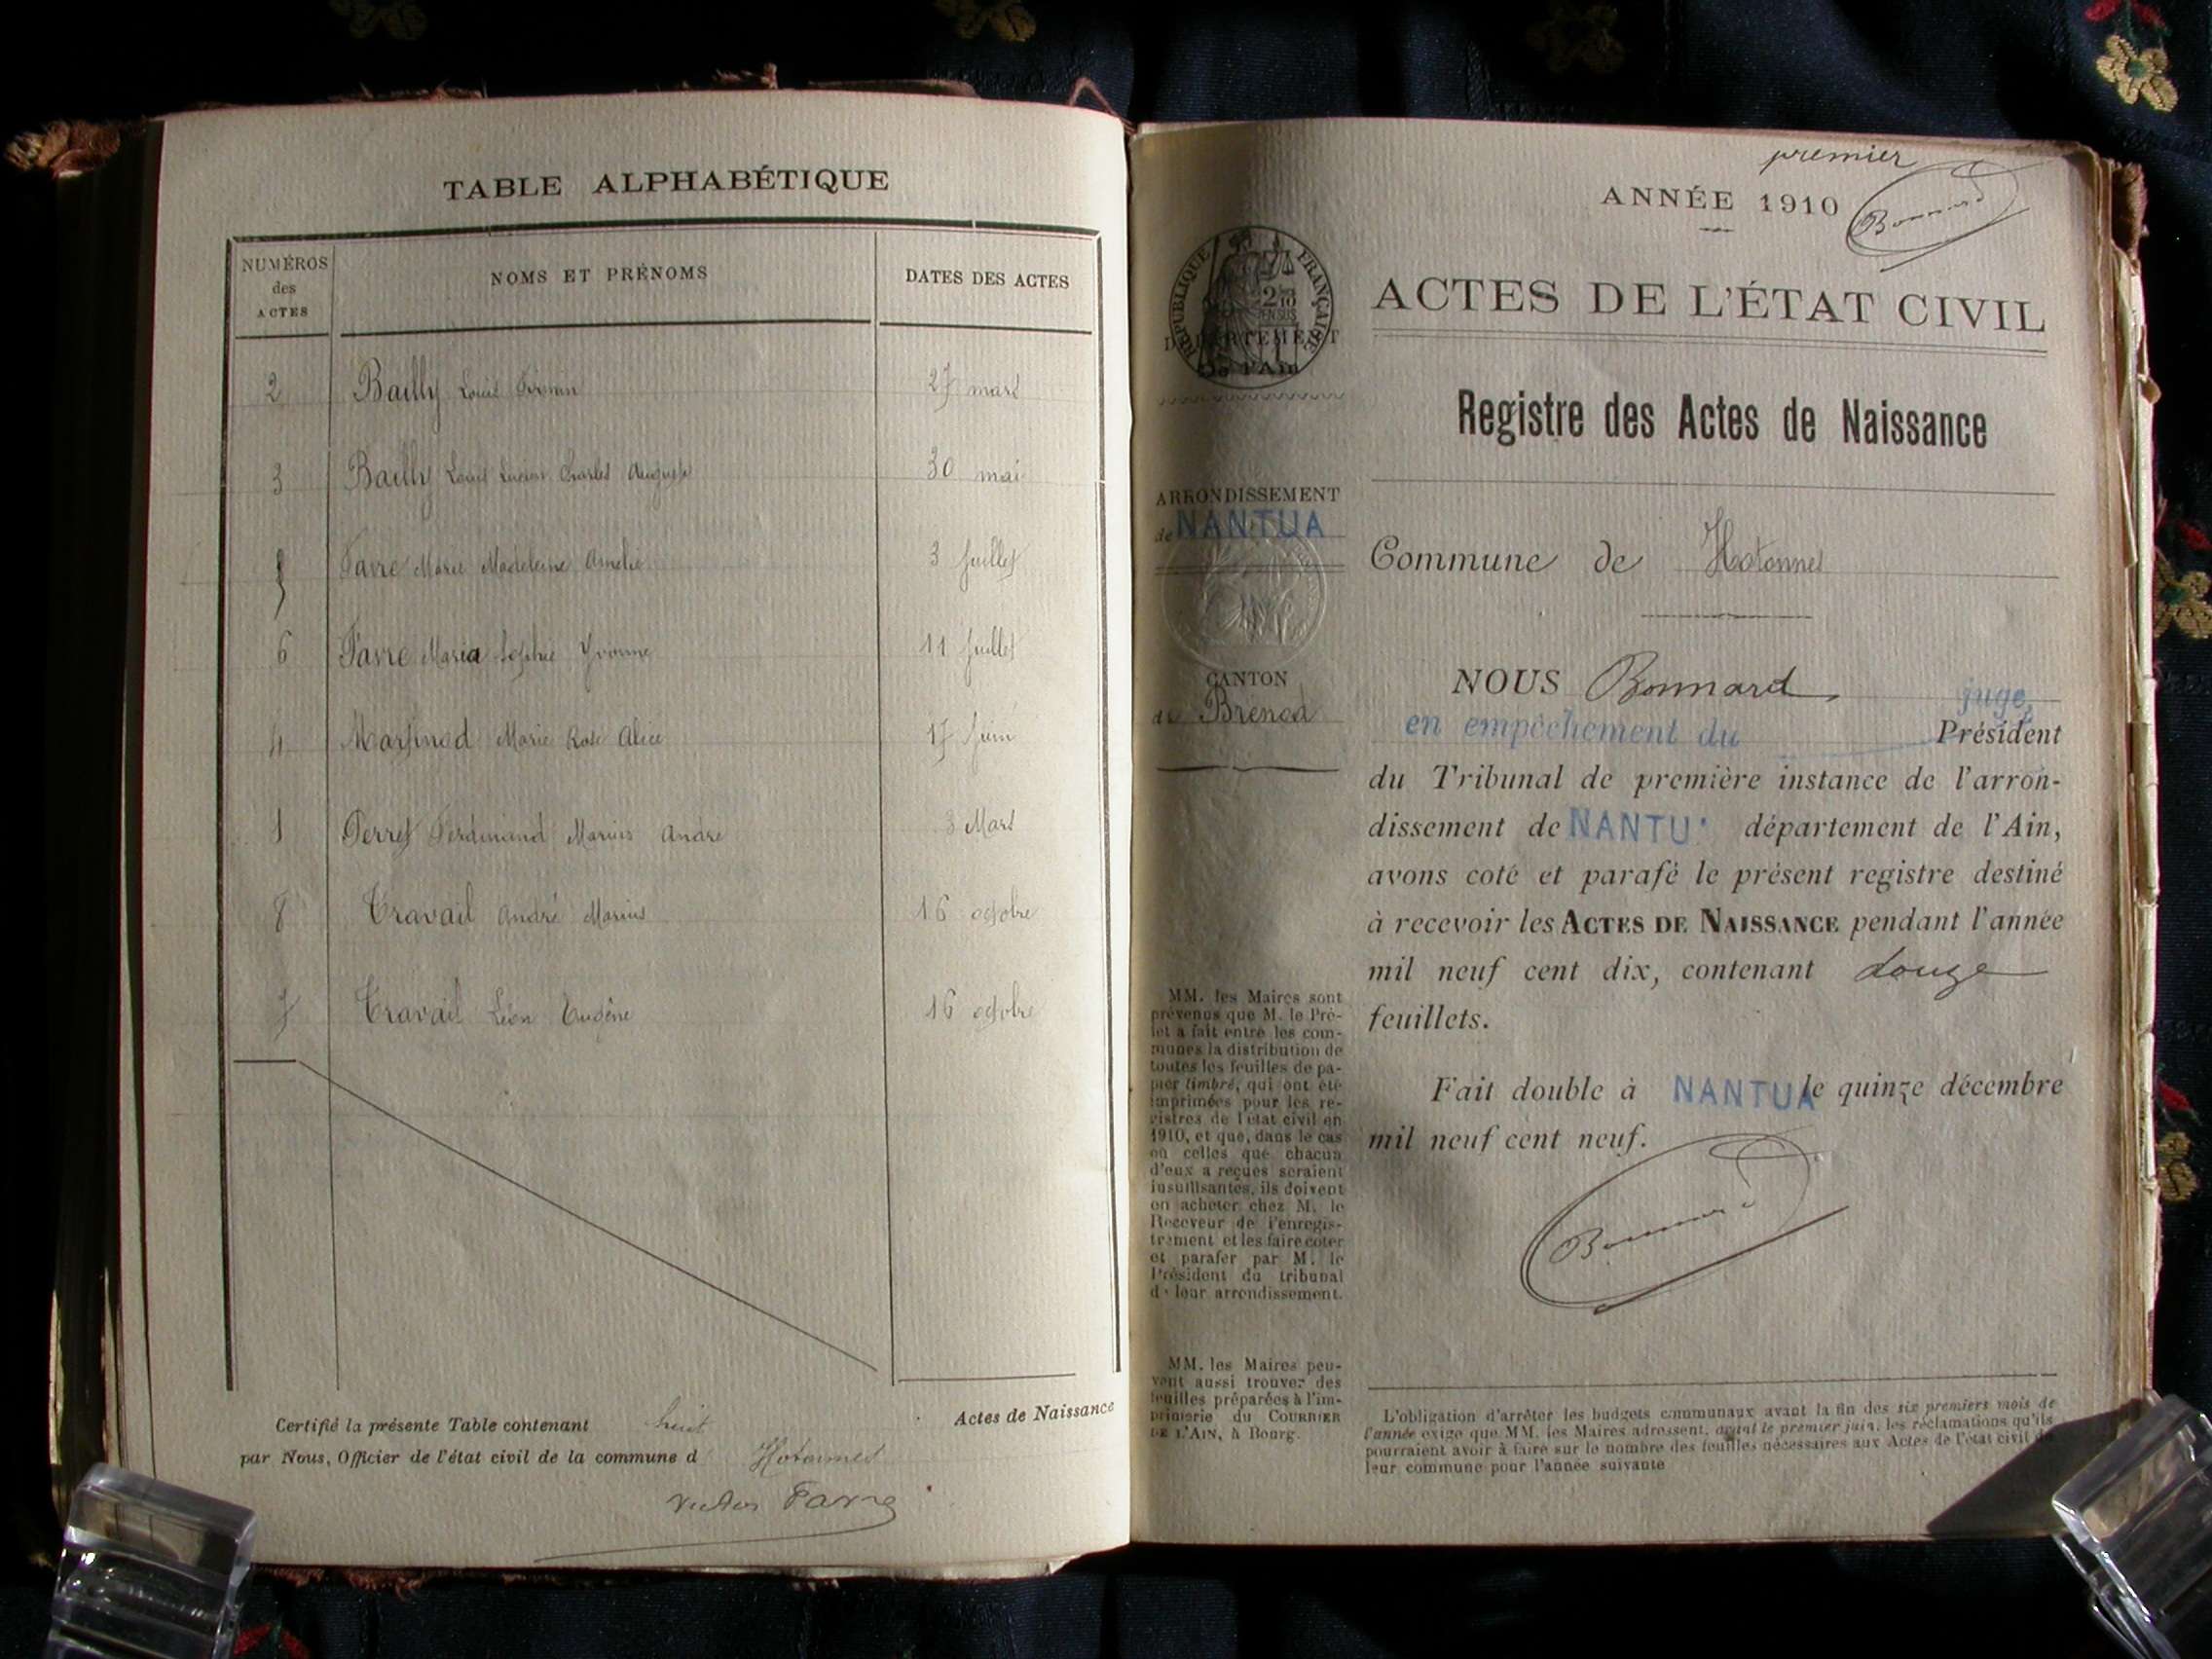 TABLE ALPHABÉTIQUE
NUMÉROS
des
ACTES
NOMS ET PRÉNOMS
DATES DES ACTES
2 Bailly Louis Firmin 27 mars
3 Bailly Louis Lucien Charles Auguste 30 mai
5 Favre Marie Madeleine Amélie 3 Juillet
6 Favre Maria Sophie Yvonne 11 Juillet
4 Martinod Marie Rose Alice 17 Juin
1 Perret Ferdinand Marius André 3 Mars
8 Travail André Marius 16 octobre
7 Travail Léon Eugène 16 octobre
Certifié la présente Table contenant huit Actes de Naissance
par Nous, Officier de l'état civil de la commune d Hotonnes
Victor Favre
premier
ANNÉE 1910
Bonnard
RÉPUBLIQUE FRANÇAISE
2/10
EN SUS
DÉPARTEMENT
de l'Ain
ARRONDISSEMENT
de NANTUA
CANTON
de Brénod
MM. les Maires sont
prévenus que M. le Pré-
fet a fait entre les com-
munes la distribution de
toutes les feuilles de pa-
pier timbré, qui ont été
imprimées pour les re-
gistres de l'état civil en
1910, et que, dans le cas
où celles que chacun
d'eux a reçues seraient
insuffisantes, ils doivent
en acheter chez M. le
Receveur de l'enregis-
trement et les faire coter
et parafer par M. le
Président du tribunal
de leur arrondissement.
MM. les Maires peu-
vent aussi trouver des
feuilles préparées à l'im-
primerie du COURRIER
DE L'AIN, à Bourg.
ACTES DE L'ÉTAT CIVIL
Registre des Actes de Naissance
Commune de Hotonnes
NOUS Bonnard, juge,
en empêchement du Président
du Tribunal de première instance de l'arron-
dissement de NANTU département de l'Ain,
avons coté et parafé le présent registre destiné
à recevoir les ACTES DE NAISSANCE pendant l'année
mil neuf cent dix, contenant douze
feuillets.
Fait double à NANTUA le quinze décembre
mil neuf cent neuf.
Bonnard
L'obligation d'arrêter les budgets communaux avant la fin des six premiers mois de
l'année exige que MM. les Maires adressent, avant le premier juin, les réclamations qu'ils
pourraient avoir à faire sur le nombre des feuilles nécessaires aux Actes de l'état civil de
leur commune pour l'année suivante